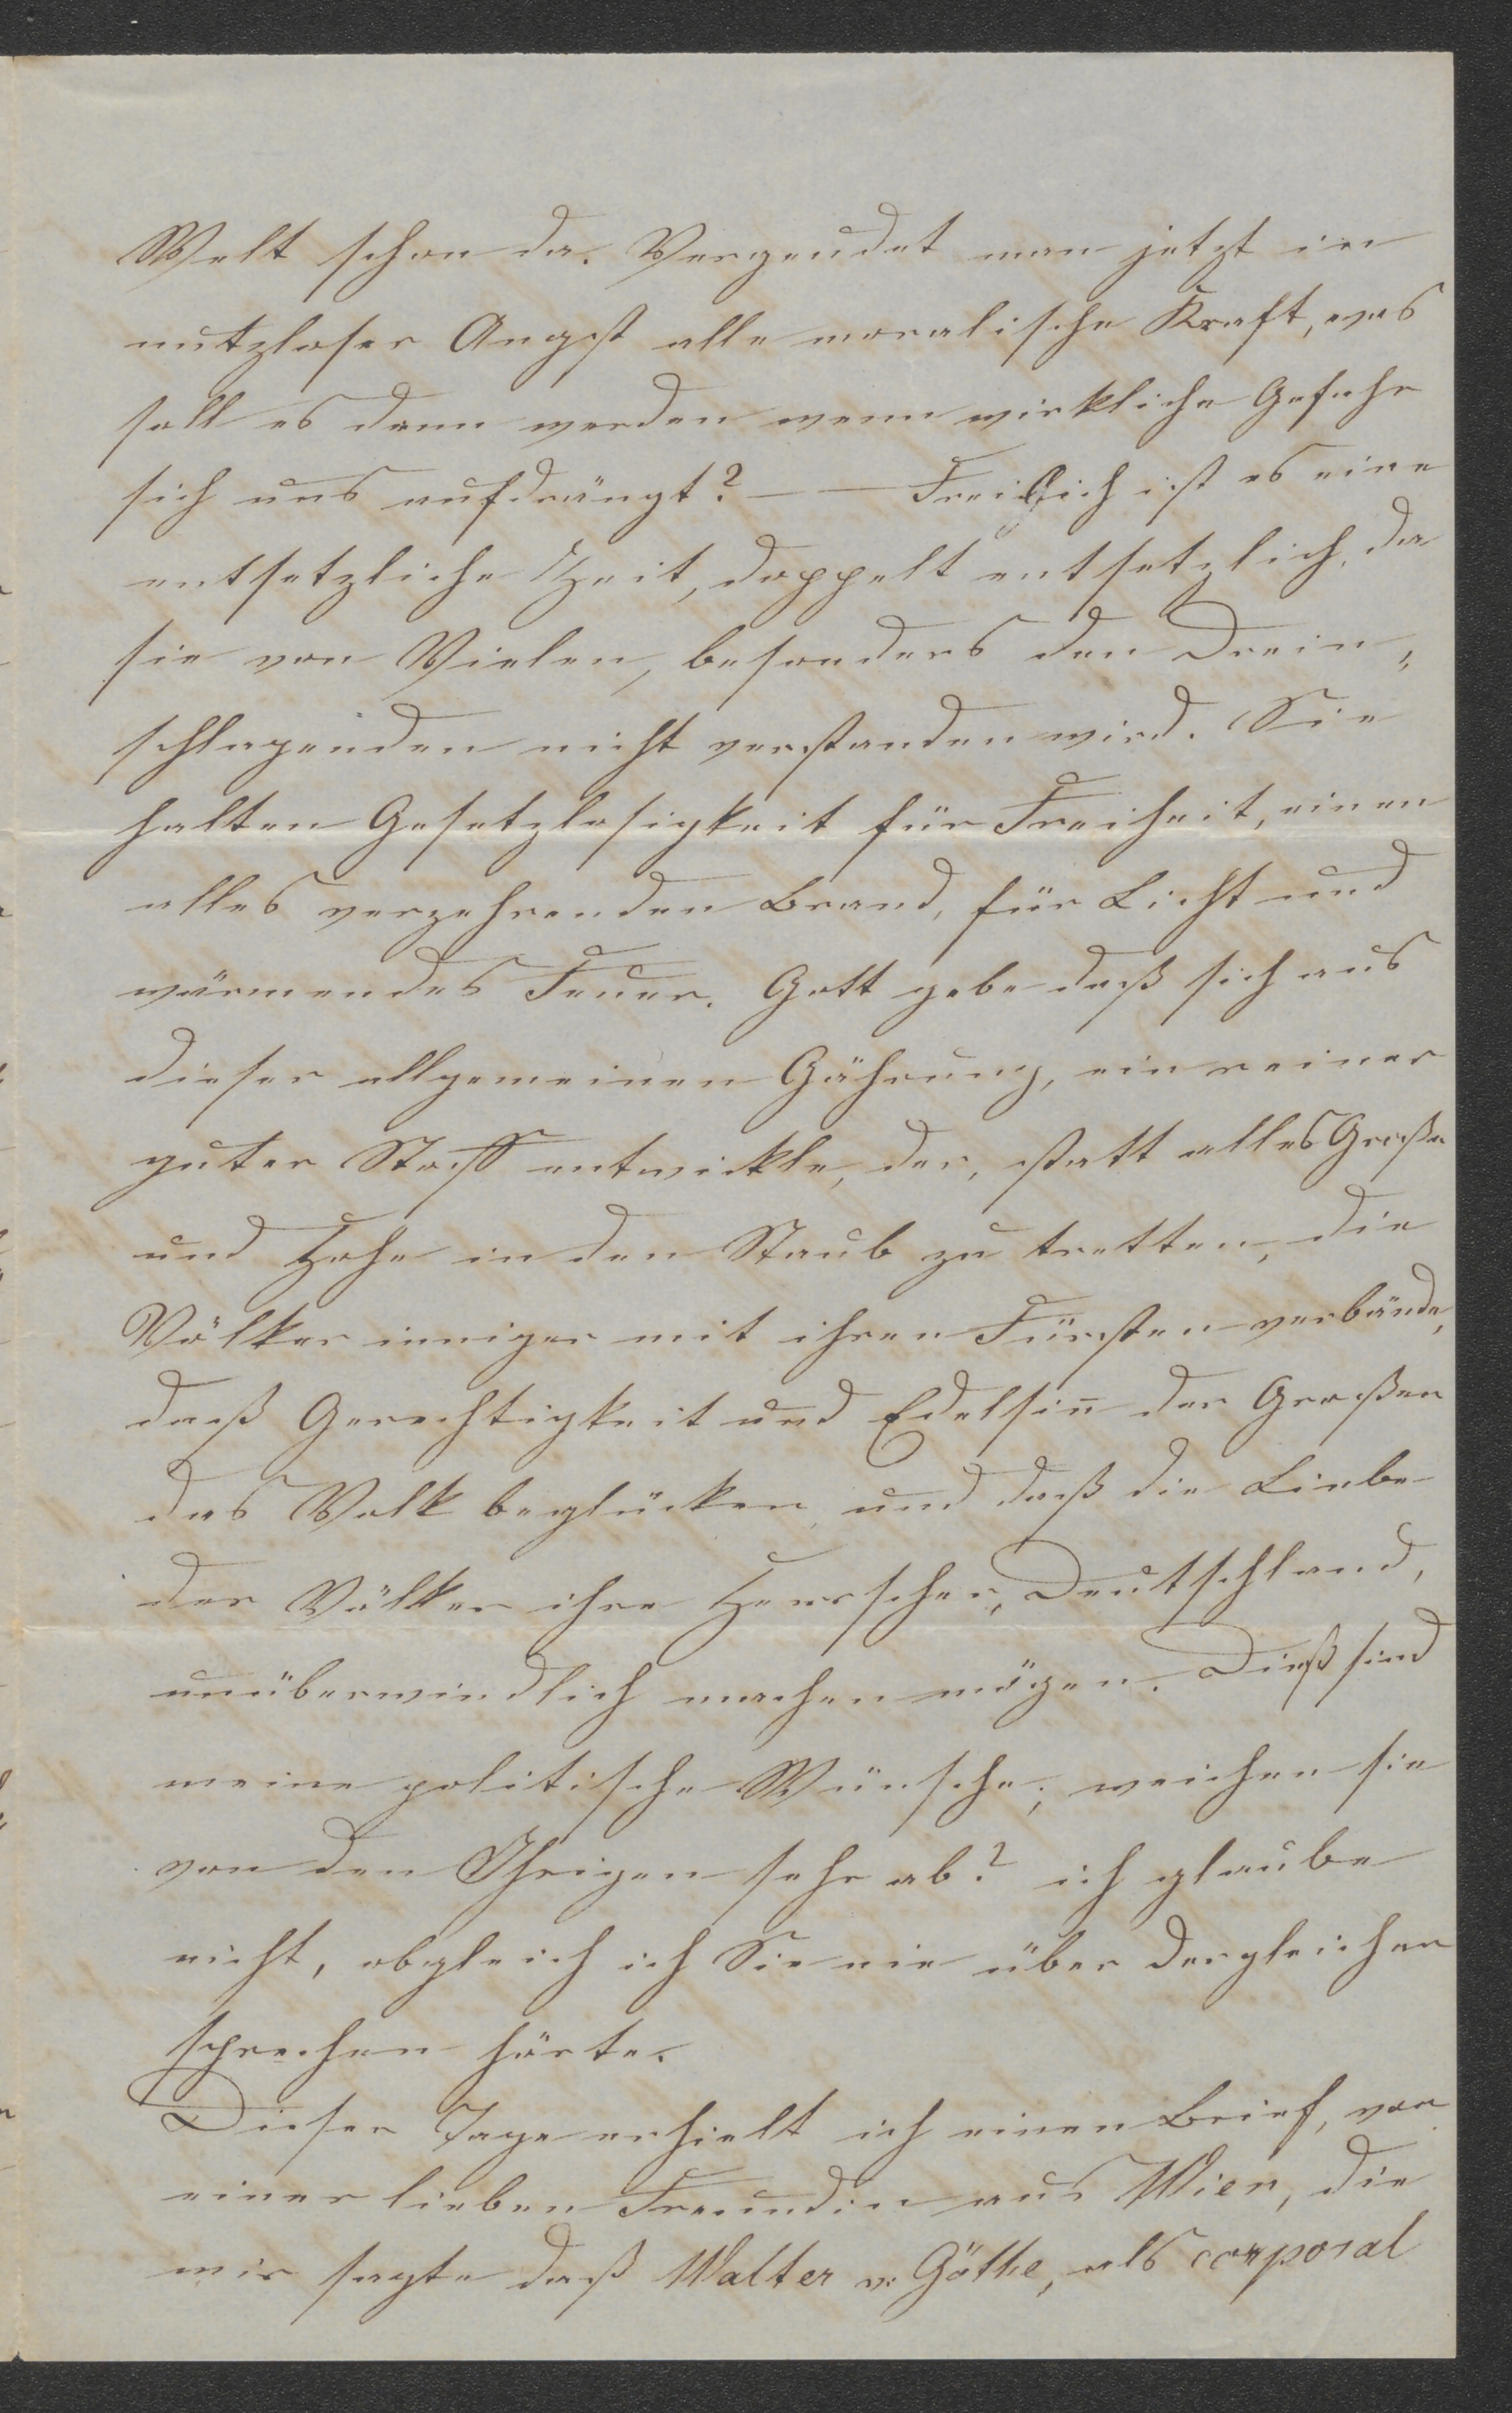 Welt schon da. Vergeudet man jetzt in
nutzloser Angst alle moralische Kraft, was
soll es dann werden wenn wirkliche Gefahr
sich uns aufdrängt? — — Freilich ist es eine
entsetzliche Zeit, doppelt entsetzlich, da
sie von Vielen, besonders den Drein„
schlagenden nicht verstanden wird. Sie
halten Gesetzlosigkeit für Freiheit, einen
alles verzehrenden Brand, für Licht und
wärmendes Feuer. Gott gebe daß sich aus
dieser allgemeinen Gährung, ein reiner
guter Stoff entwickle, der, statt alles Große
und Hohe in den Staub zu tretten, die
Völker inniger mit ihren Fürsten verbände,
daß Gerechtigkeit und Edelsin̄ der Großen
das Volk beglücken, und daß die Liebe
der Völker ihre Herrscher, Deutschland,
unüberwindlich machen mögen. Dieß sind
meine politische Wünsche; weichen sie
von den Ihrigen sehr ab? ich glaube
nicht, obgleich ich Sie nie über dergleichen
sprechen hörte.
Dieser Tage erhielt ich einen Brief, von
einer lieben Freundin aus Wien, die
mir sagte daß Walter v. Göthe, als corporal